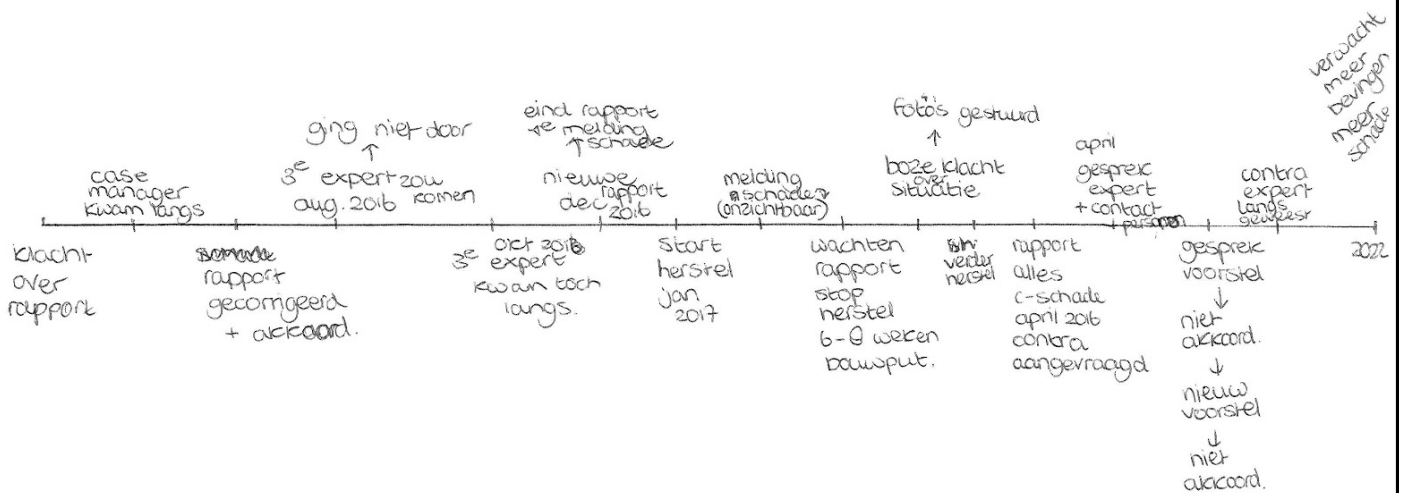 klacht
over
rapport
case
manager
kwam langs
rapport
gecorrigeerd
+ akkoord.
ging niet door
3e expert zou
aug. 2016 komen
okt 2016
3e expert
kwam toch
langs.
eind rapport
1e melding
schade
nieuwe
rapport
dec 2016
start
herstel
jan
2017
melding
schade
(onzichtbaar)
wachten
rapport
stop
herstel
6-8 weken
bouwput.
foto's gestuurd
boze klacht
over
situatie
verder
herstel
rapport
alles
c-schade
april 2016
contra
aangevraagd
april
gesprek
expert
+ contact
personen
gesprek
voorstel
niet
akkoord.
nieuw
voorstel
niet
akkoord.
contra
expert
langs
geweest
2022
verwacht
meer
bevingen
meer
schade